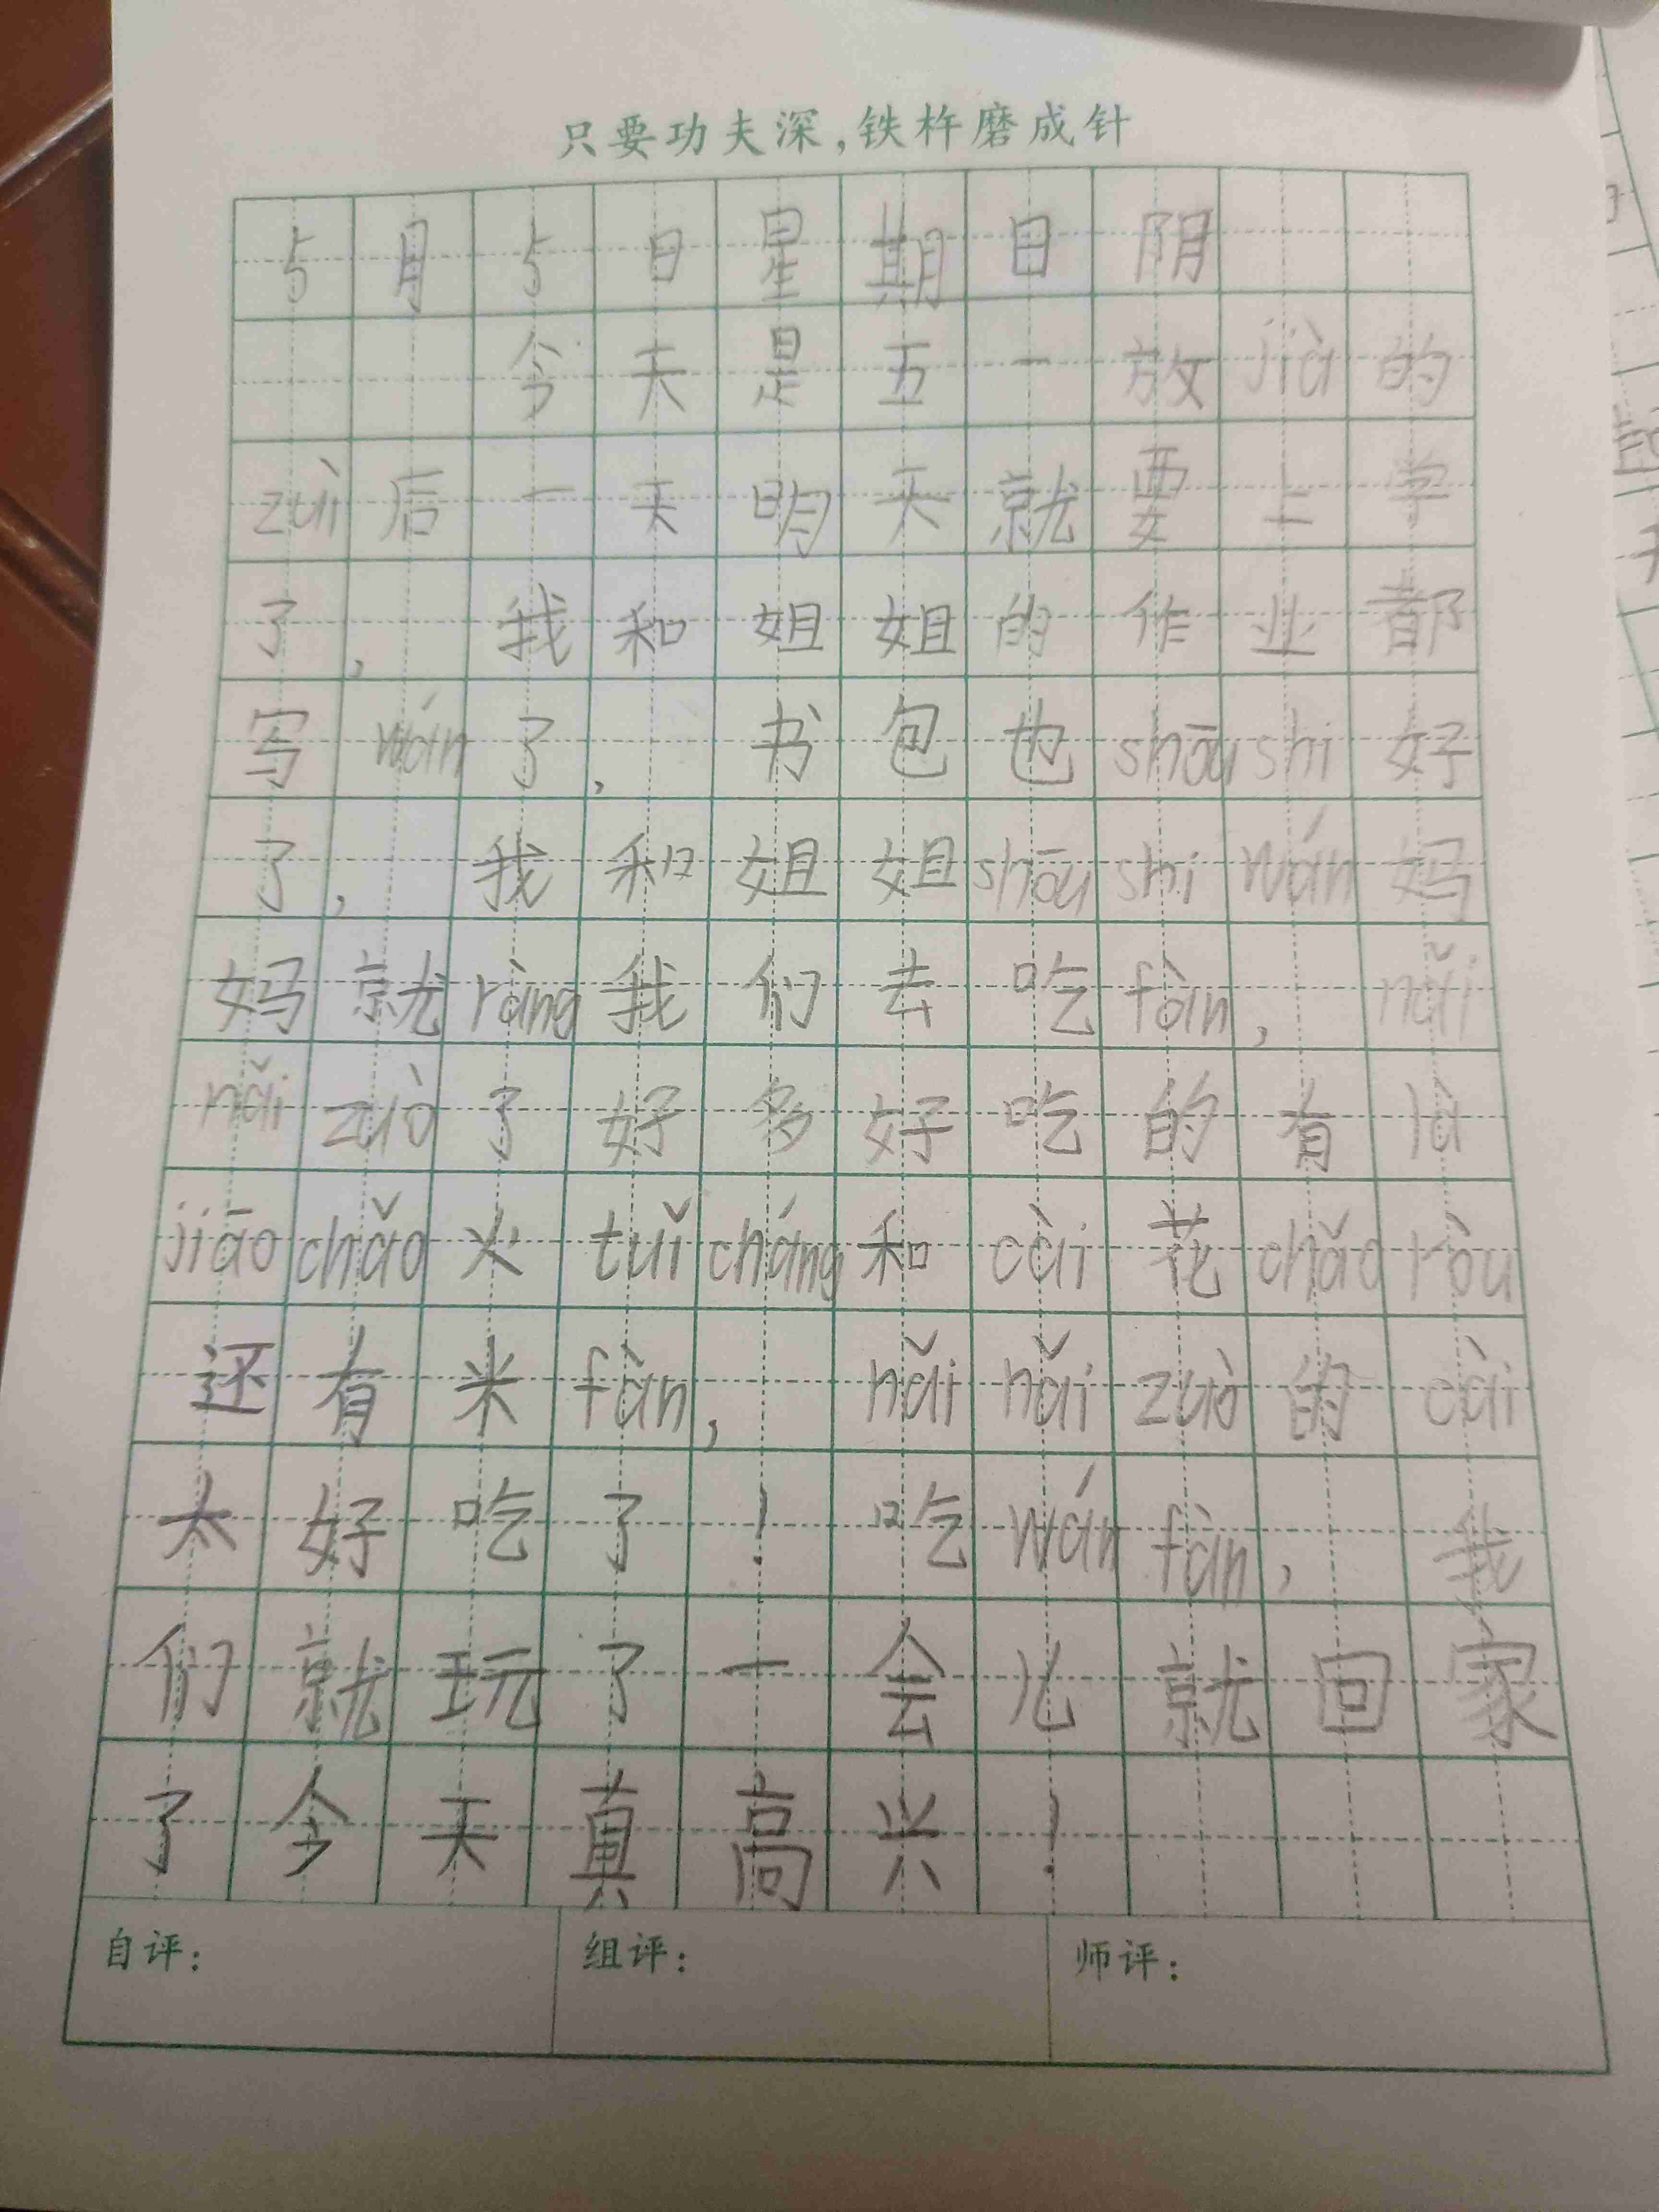 只要功夫深，铁杵磨成针
5月5日星期日阴
今天是五一放jià的
zuì后一天明天就要上学
了，我和姐姐的作业都
写wán了，书包也shōushi好
了，我和姐姐shōushiwán妈
妈就ràng我们去吃fàn，nǎi
nǎizuò了好多好吃的有là
jiāochǎo火tuǐcháng和cài花chǎoròu
还有米fàn，nǎinǎizuò的cài
太好吃了！吃wánfàn，我
们就玩了一会儿就回家
了今天真高兴！
自评： 组评： 师评：